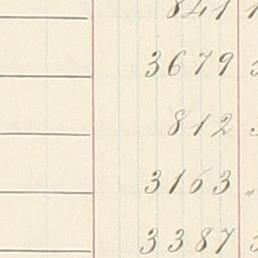 841
3679
812
3163
3387